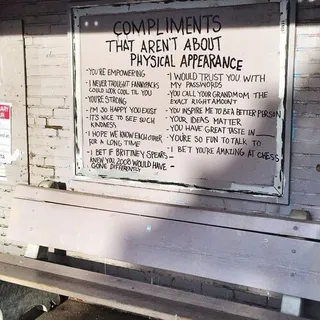 COMPLIMENTS
THAT AREN'T ABOUT
PHYSICAL APPEARANCE
-YOU'RE EMPOWERING
-I NEVER THOUGHT FANNYPACKS
COULD LOOK COOL TIL YOU
-YOU'RE STRONG
-I'M SO HAPPY YOU EXIST
-IT'S NICE TO SEE SUCH
KINDNESS
-I HOPE WE KNOW EACH OTHER
FOR A LONG TIME
-I BET IF BRITTNEY SPEARS
KNEW YOU 2008 WOULD HAVE
GONE DIFFERENTLY
-I WOULD TRUST YOU WITH
MY PASSWORDS
-YOU CALL YOUR GRANDMOM THE
EXACT RIGHT AMOUNT
-YOU INSPIRE ME TO BE A BETTER PERSON
-YOUR IDEAS MATTER
-YOU HAVE GREAT TASTE IN
-YOU'RE SO FUN TO TALK TO
-I BET YOU'RE AMAZING AT CHESS